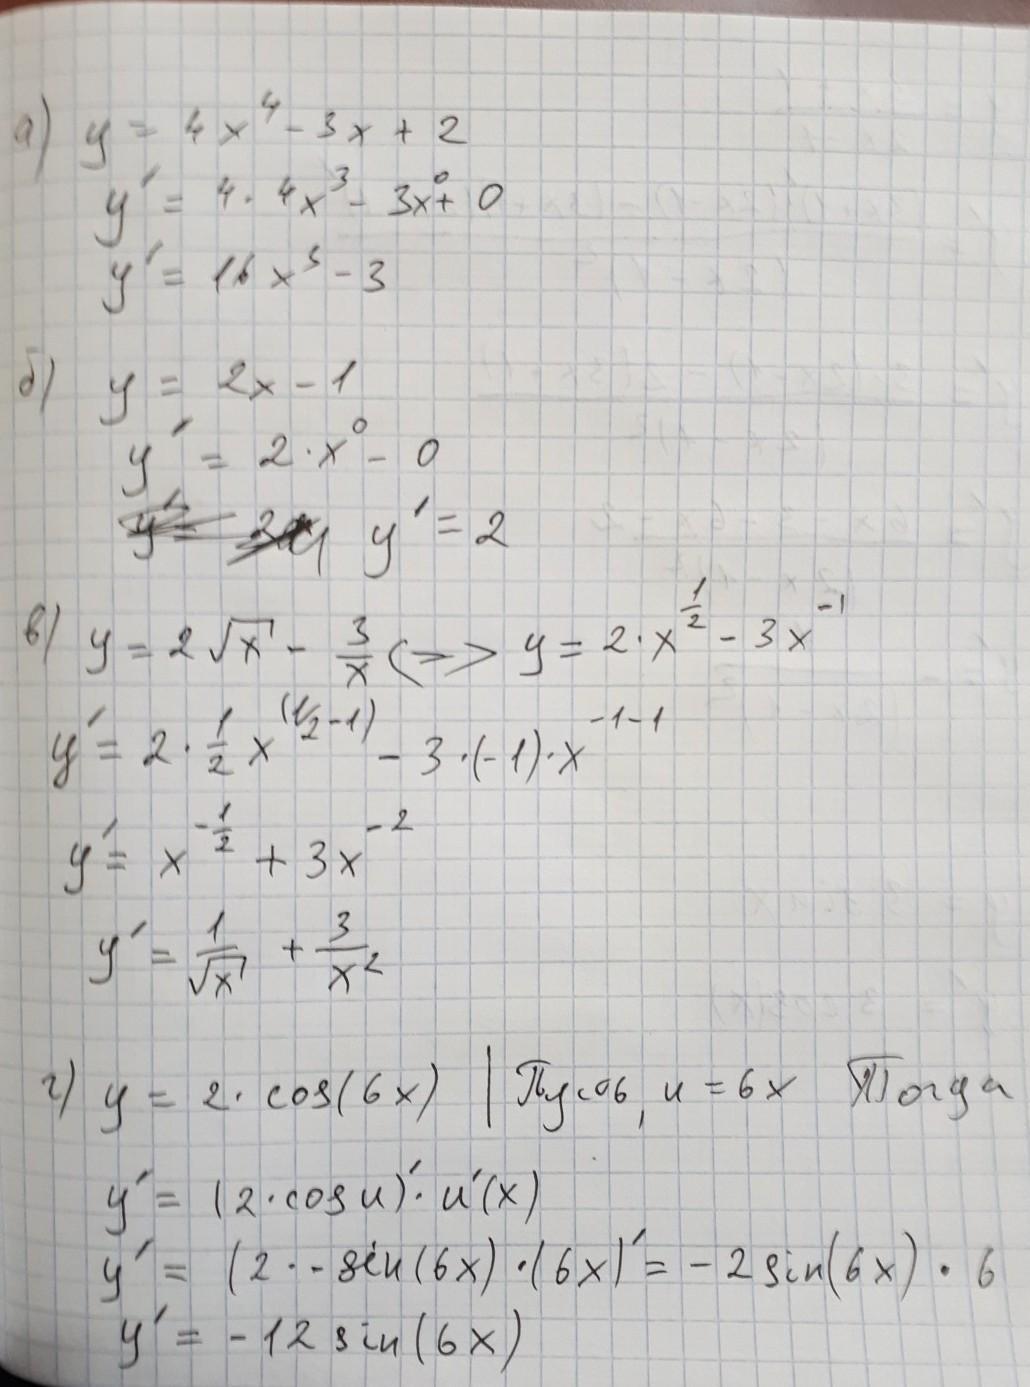 а) y = 4x⁴ - 3x + 2
y' = 4·4x³ - 3x⁰ + 0
y' = 16x³ - 3
б) y = 2x - 1
y' = 2·x⁰ - 0
y' = 2
в) y = 2√x - 3/x <=> y = 2·x^(1/2) - 3x⁻¹
y' = 2·1/2 x^(1/2-1) - 3·(-1)·x^(-1-1)
y' = x^(-1/2) + 3x⁻²
y' = 1/√x + 3/x²
г) y = 2·cos(6x) | Пусть, u = 6x Тогда
y' = (2·cos u)'·u'(x)
y' = (2·-sin(6x)·(6x)' = -2sin(6x)·6
y' = -12 sin(6x)